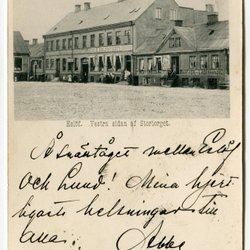 Eslöf. Vestra sidan af Stortorget.
Å snäntåget mellan Eslöf
och Lund! Mina hjert-
ligaste helsningar till
alla.